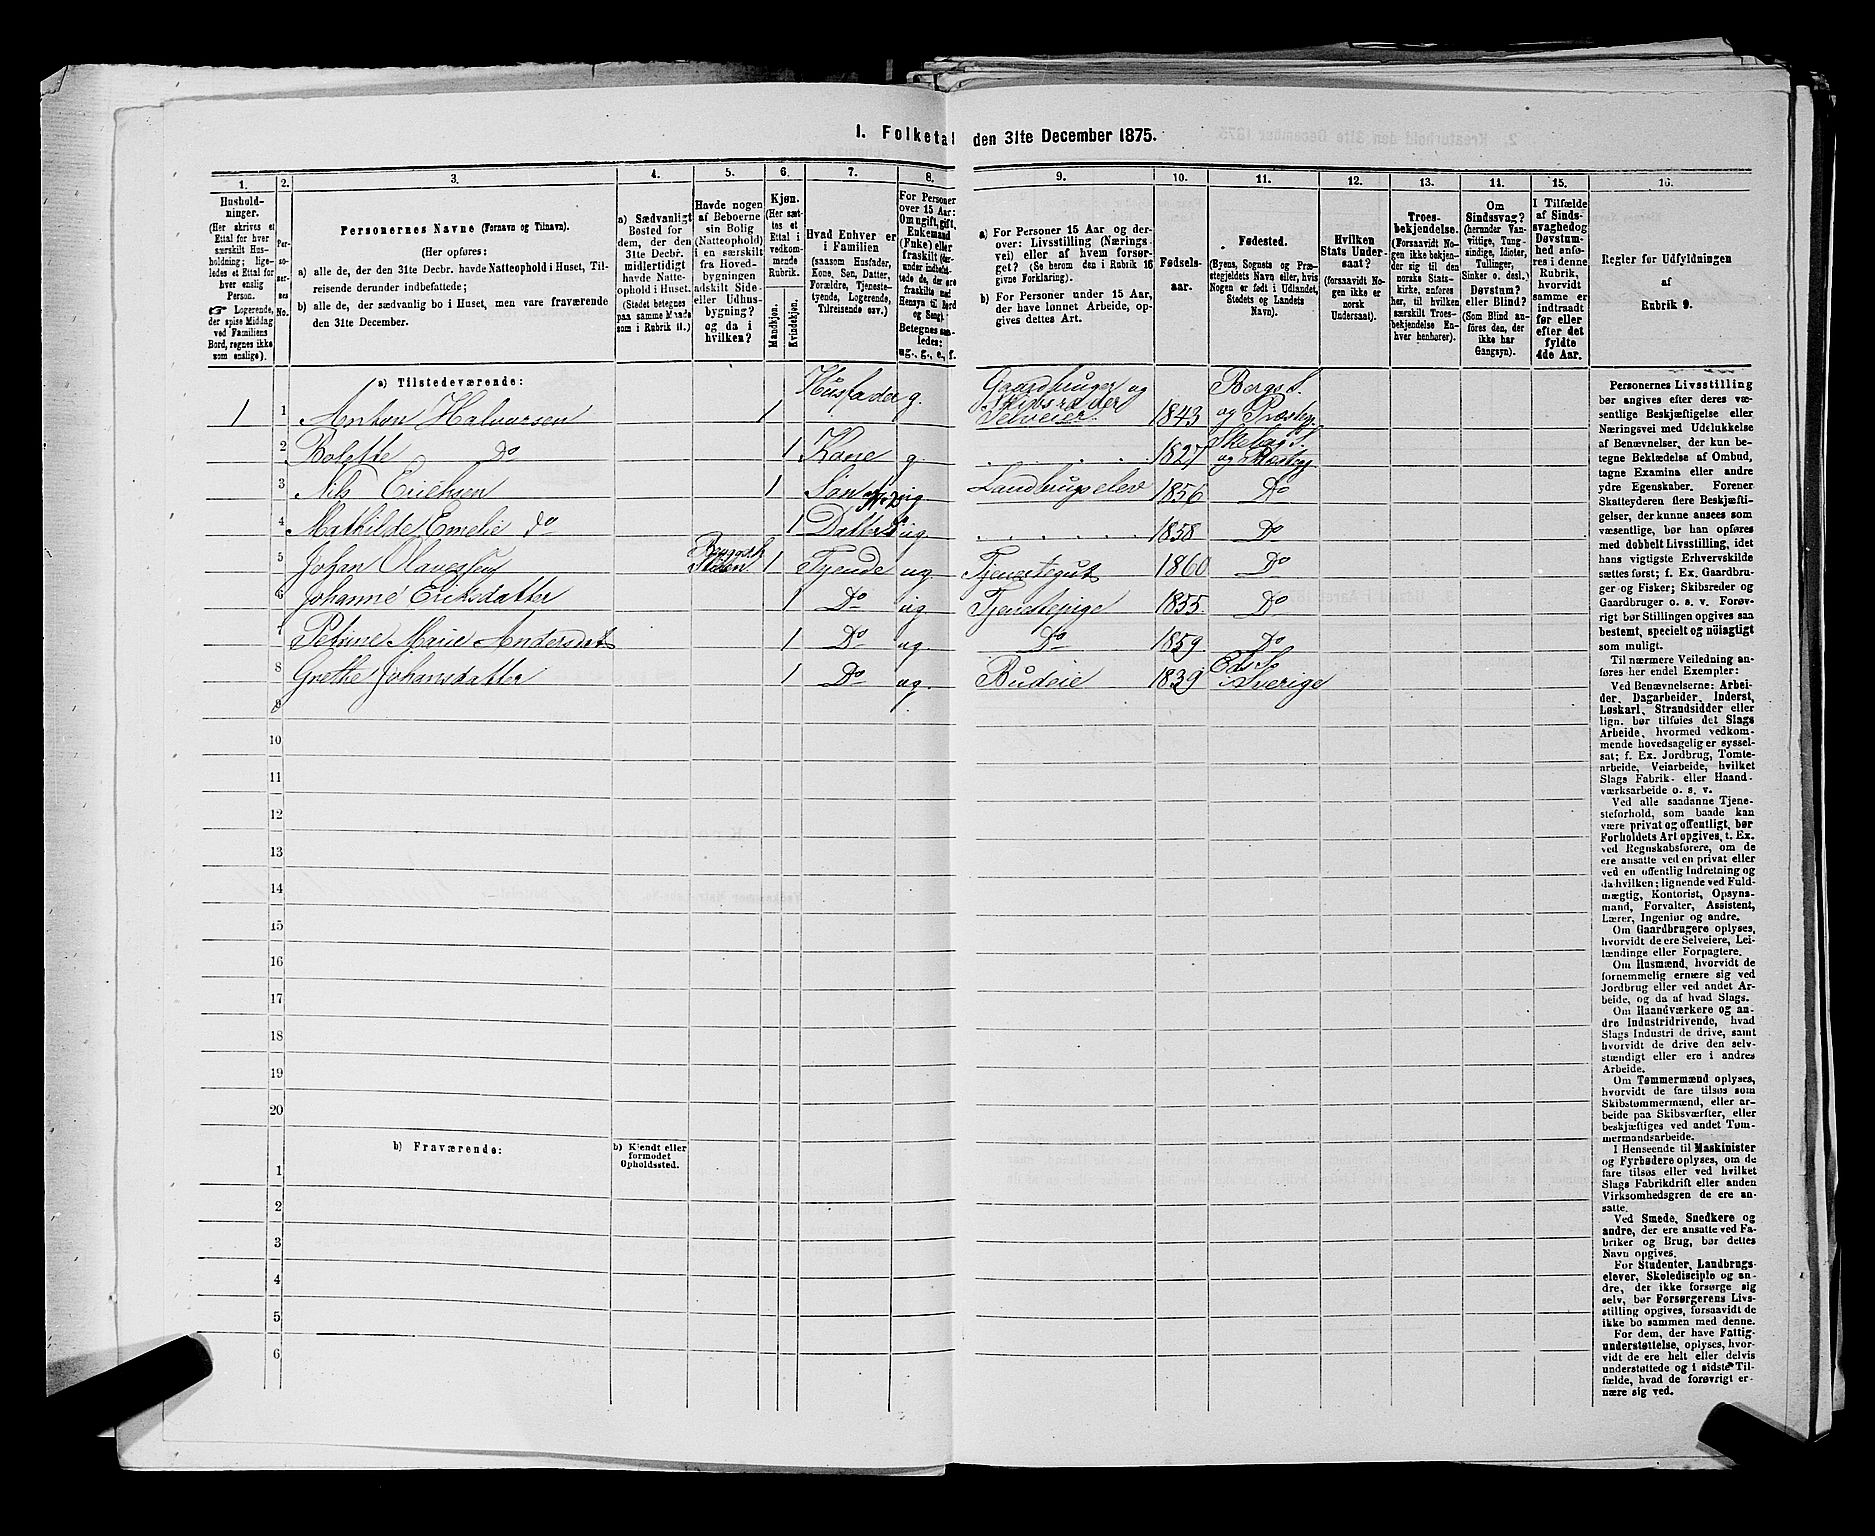 1. Folketal den 31te December 1875.
1. 2. 3. 4. 5. 6. 7. 8. 9. 10. 11. 12. 13. 14. 15. 16.
Hushold-
ninger.
(Her skrives et
Ettal for hver
særskilt Hus-
holdning; lige-
ledes et Ettal for
hver enslig
Person.
☞ Logerende,
der spise Middag
ved Familiens
Bord, regnes ikke
som enslige).
Per-
so-
ner-
nes
No.
Personernes Navne (Fornavn og Tilnavn).
(Her opføres:
a) alle de, der den 31te Decbr. havde Natteophold i Huset, Til-
reisende derunder indbefattede;
b) alle de, der sædvanlig bo i Huset, men vare fraværende
den 31te December.
a) Sædvanligt
Bosted for
dem, der den
31te Decbr.
midlertidigt
havde Natte-
ophold i Huset.
(Stedet betegnes
paa samme Maade
som i Rubrik 11.)
Havde nogen
af Beboerne
sin Bolig
(Natteophold)
i en særskilt
fra Hoved-
bygningen
adskilt Side-
eller Udhus-
bygning?
og da i
hvilken?
Kjøn.
(Her sæt-
tes et
Ettal i
vedkom-
mende
Rubrik.
Mandkjøn.
Kvindekjøn.
Hvad Enhver er
i Familien
(saasom Husfader,
Kone, Søn, Datter,
Forældre, Tjeneste-
tyende, Logerende,
Tilreisende osv.)
For Personer
over 15 Aar:
Om ugift, gift,
Enkemand
(Enke) eller
fraskilt (der-
under indbefat-
tede de, der ere
fraskilte med
Hensyn til Bord
og Seng).
Betegnes saa-
ledes:
ug., g., e., f.
a) For Personer 15 Aar og der-
over: Livsstilling (Nærings-
vei) eller af hvem forsør-
get? (Se herom den i Rubrik 16
givne Forklaring).
b) For Personer under 15 Aar,
der have lønnet Arbeide, op-
gives dettes Art.
Fødsels-
aar.
Fødested.
(Byens, Sognets og Præ-
stegjeldets Navn eller, hvis
Nogen er født i Udlandet,
Stedets og Landets
Navn).
Hvilken
Stats Under-
saat?
(forsaavidt No-
gen ikke er
norsk
Undersaat).
Troes-
bekjendelse.
(Forsaavidt No-
gen ikke bekjen-
der sig til den
norske Stats-
kirke, anføres
her, til hvilken
særskilt Troes-
bekjendelse En-
hver henhører).
Om
Sindssvag?
(herunder Van-
vittige, Tung-
sindige, Idioter,
Tullinger,
Sinker o. desl.)
Døvstum?
eller Blind?
(Som Blind an-
føres den, der
ikke har
Gangsyn).
I Tilfælde
af Sinds-
svaghed og
Døvstum-
hed anfø-
res i denne
Rubrik,
hvorvidt
samme er
indtraadt
før eller
efter det
fyldte
4de Aar.
Regler før Udfyldningen
af
Rubrik 9.
a) Tilstedeværende:
1 1 Anton Halvorsen 1 Husfader g. Gaardbruger og Skibsreder Selveier. 1843 Bergs S. og Præsteg.
2 Bolette Do 1 Kone g. . . . . . . 1827 Skebergs S. og Præsteg.
3 Nils Erichsen 1 Søn ug. Landbrugselev 1856 Do
4 Mathilde Emelie do 1 Datter ug. . . . . . . 1858 Do
5 Johan Olavesen 1 Tyende ug. Tjenestegut 1860 Do
6 Johanne Eriksdatter 1 Do ug Tjenstepige 1855. Do
7 Petrine Marie Andersdat 1 Do ug. Do 1859. Do
8 Grethe Johansdatter 1 Do ug. Budeie 1839 Eds So i Sverige
9
10
11
12
13
14
15
16
17
18
19
20
b) Fraværende:
b) Kjendt eller
formodet
Opholdssted.
1
2
3
4
5
6
Personernes Livsstilling
bør angives efter deres væ-
sentlige Beskjæftigelse eller
Næringsvei med Udelukkelse
af Benævnelser, der kun be-
tegne Beklædelse af Ombud,
tagne Examina eller andre
ydre Egenskaber. Forener
Skatteyderen flere Beskjæfti-
gelser, der kunne ansees som
væsentlige, bør han opføres
med dobbelt Livsstilling, idet
hans vigtigste Erhvervskilde
sættes først; f. Ex. Gaardbru-
ger og Fisker; Skibsreder og
Gaardbruger o. s. v. Forøv-
rigt bør Stillingen opgives saa
bestemt, specielt og nöiagtigt
som muligt.
Til nærmere Veiledning an-
føres her endel Exempler:
Ved Benævnelserne: Arbei-
der, Dagarbeider, Inderst,
Løskarl, Strandsidder eller
lign. bør tilføies det Slags
Arbeide, hvormed vedkom-
mende hovedsagelig er syssel-
sat; f. Ex. Jordbrug, Tomte-
arbeide, Veiarbeide, hvilket
Slags Fabrik- eller Haand-
værksarbeide o. s. v.
Ved alle saadanne Tjene-
steforhold, som baade kan
være privat og offentligt, bør
Forholdets Art opgives, t. Ex.
ved Regnskabsførere, om de
ere ansatte ved en privat eller
ved en offentlig Indretning og
da hvilken; lignende ved Fuld-
mægtig, Kontorist, Opsyns-
mand, Forvalter, Assistent,
Lærer, Ingeniør og andre.
Om Gaardbrugere oplyses,
hvorvidt de ere Selveiere, Lei-
lændinge eller Forpagtere.
Om Husmænd, hvorvidt de
fornemmelig ernære sig ved
Jordbrug eller ved andet Ar-
beide, og da af hvad Slags.
Om Haandværkere og an-
dre Industridrivende, hvad
Slags Industri de drive, samt
hvorvidt de drive den selv-
stændigt eller ere i andres
Arbeide.
Om Tømmermænd oplyses,
hvorvidt de fare tilsøs som
Skibstømmermænd, eller ar-
beide paa Skibsværfter, eller
beskjæftiges ved andet Tøm-
mermandsarbeide.
I Henseende til Maskinister
og Fyrbødere oplyses, om de
fare tilsøs eller ved hvilket
Slags Fabrikdrift eller anden
Virksomhedsgren de ere an-
satte.
Ved Smede, Snedkere og
andre, der ere ansatte ved Fa-
briker og Brug, bør dettes
Navn opgives.
For Studenter, Landbrugs-
elever, Skoledisciple og an-
dre, der ikke forsørge sig
selv, bør Forsørgerens Livs-
stilling opgives, forsaavidt de
ikke bo sammen med denne.
For dem, der have Fattig-
understøttelse, oplyses, hvor-
vidt de ere helt eller delvis
understøttede og i sidste Til-
fælde, hvad de forøvrigt er-
nære sig ved.